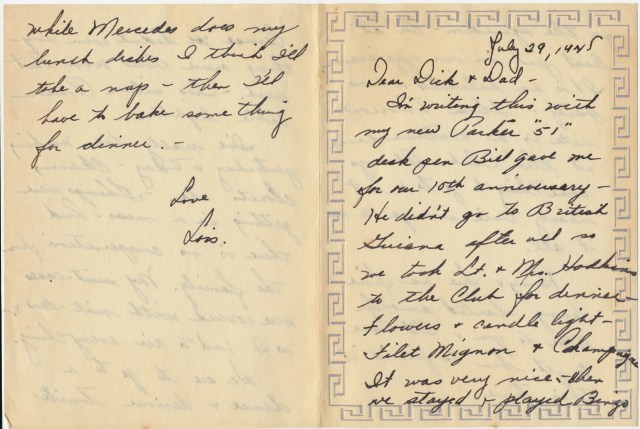 while Mercedes does my
lunch dishes I think I'll
take a nap - then I'll
have to bake something
for dinner. -
Love
Lois.
July 29, 1945
Dear Dick & Dad -
I'm writing this with
my new Parker "51"
desk pen Bill gave me
for our 10th anniversary -
He didn't go to British
Guiana after all so
we took Lt. & Mrs. Hodkins
to the Club for dinner -
Flowers & candle light -
Filet Mignon & Champagne
It was very nice, - then
we stayed & played Bingo